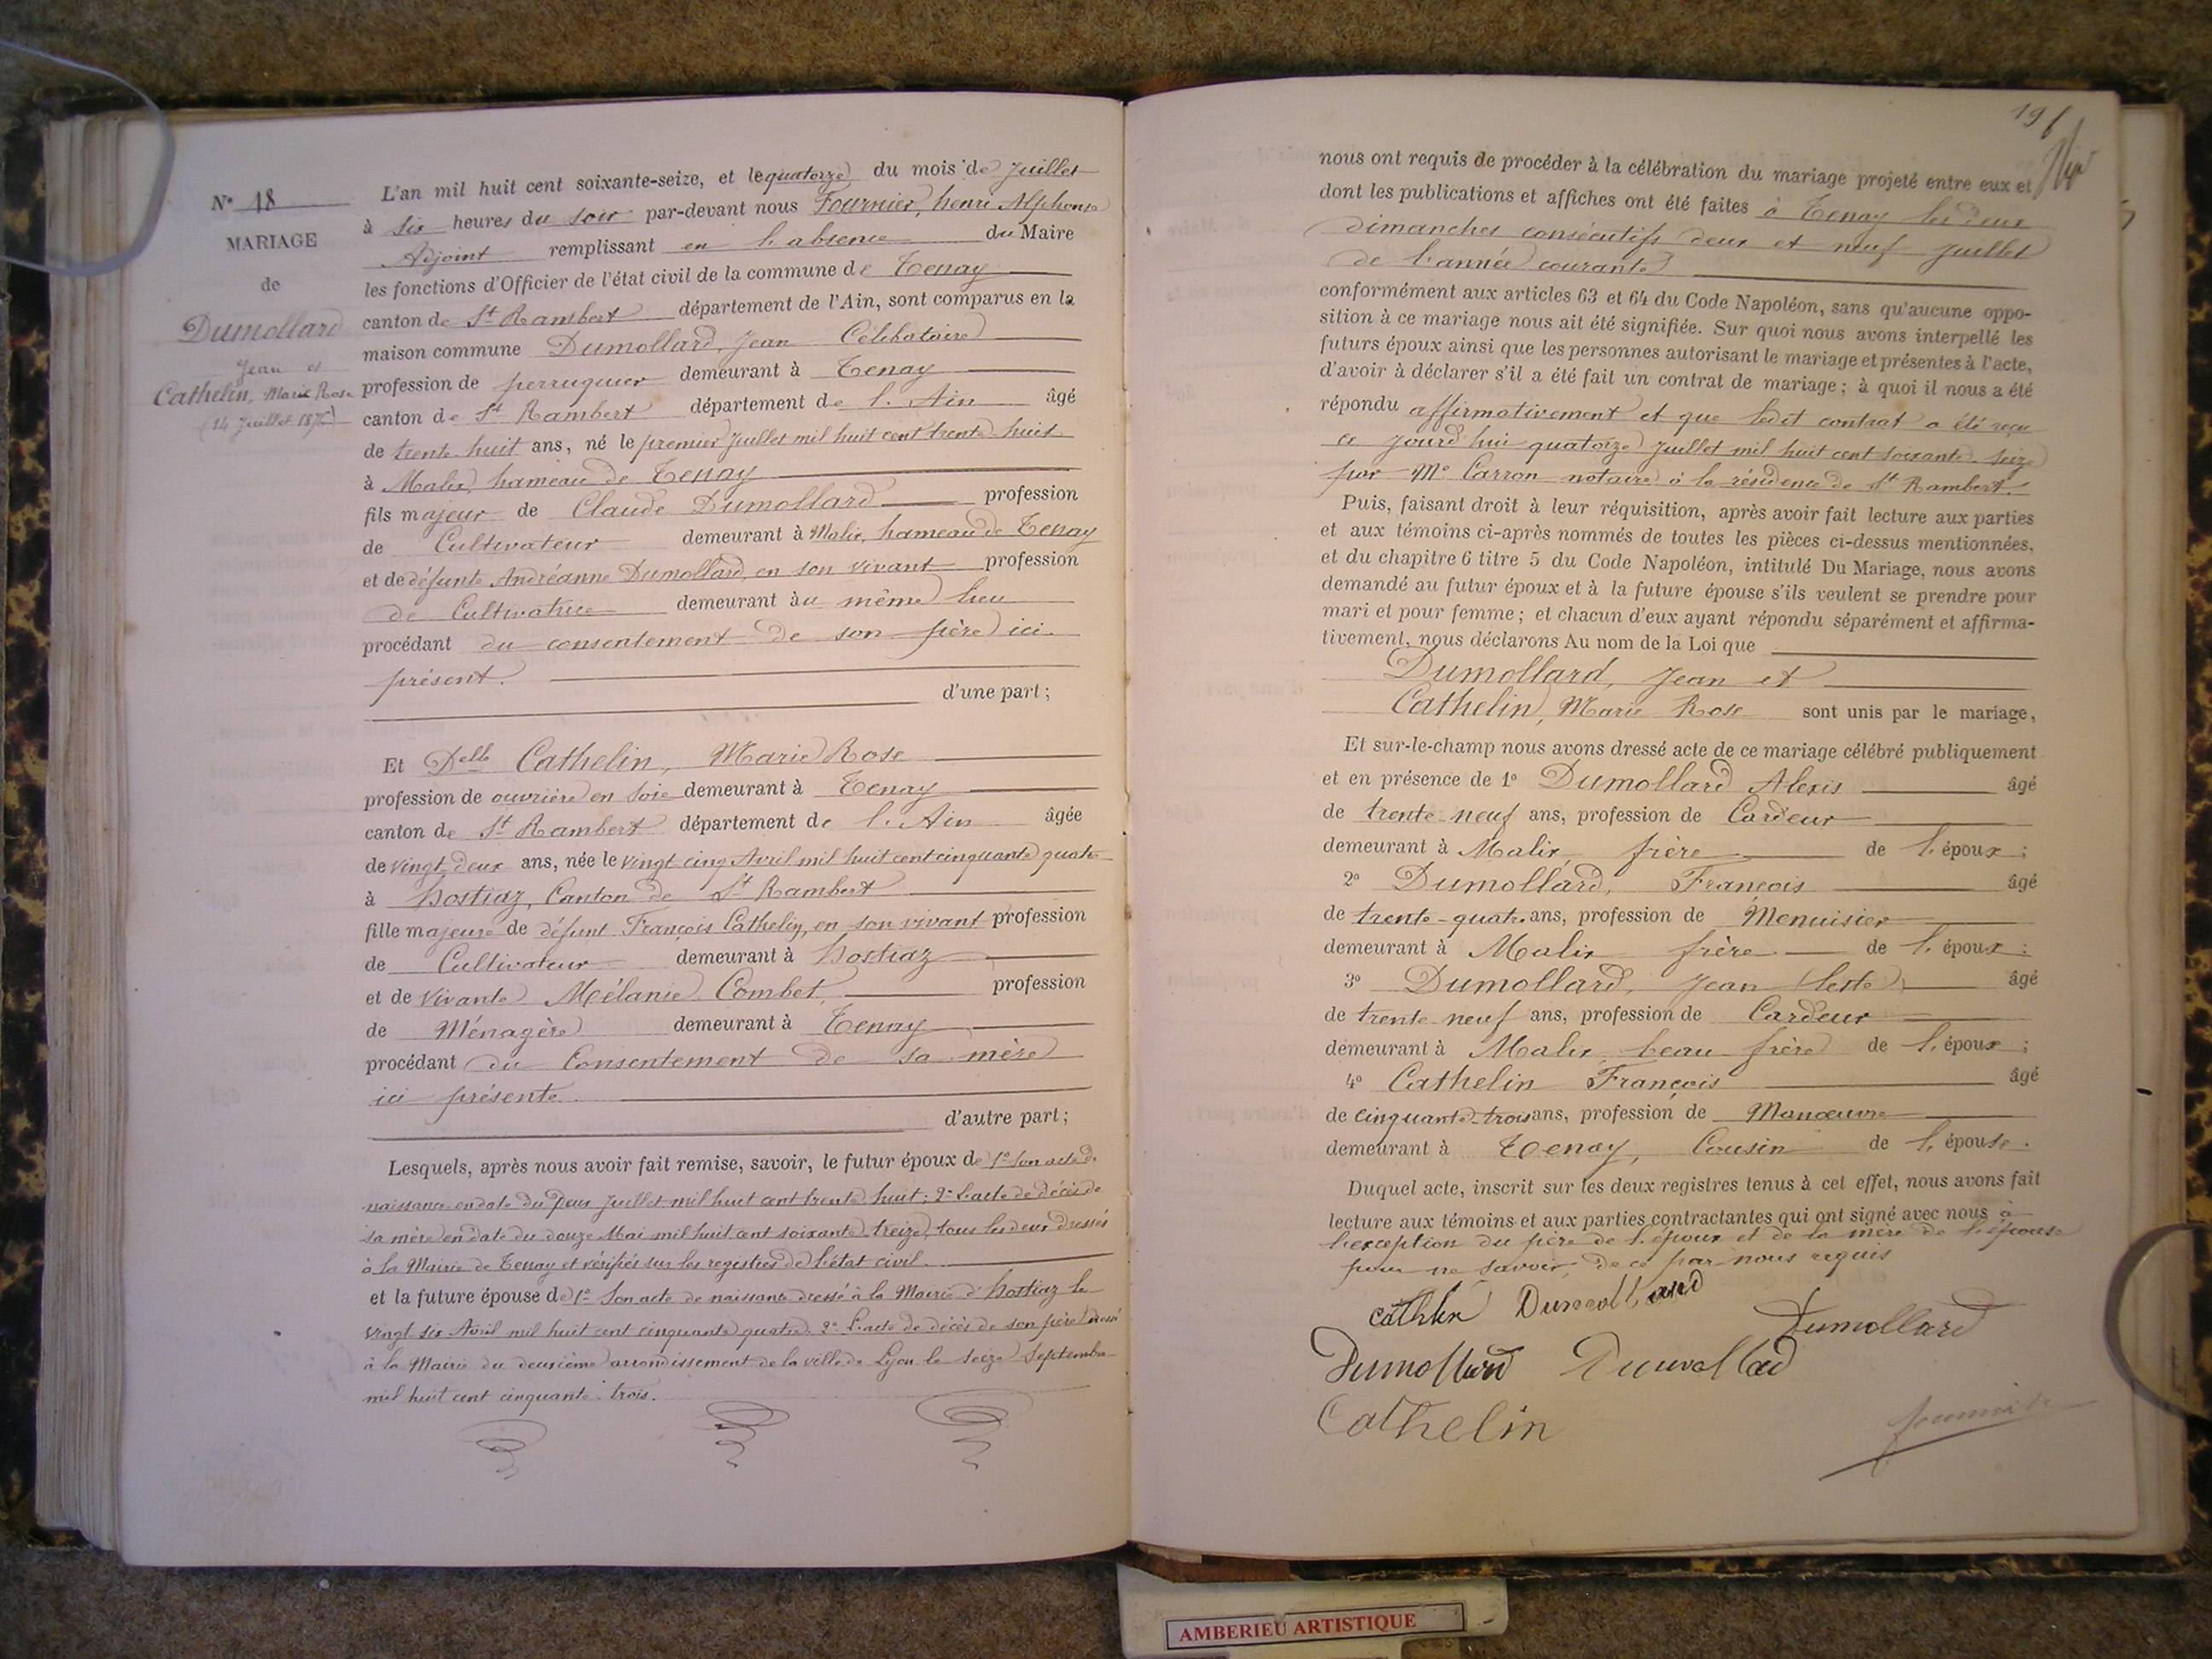 N° 18
MARIAGE
de
Dumollard
Jean et
Cathelin, Marie Rose
(14 Juillet 1876)
L'an mil huit cent soixante-seize, et le quatorze du mois de Juillet
à six heures du soir par-devant nous Fournier, henri Alphonse
Adjoint remplissant en l'absence du Maire
les fonctions d'Officier de l'état civil de la commune de Tenay
canton de St Rambert département de l'Ain, sont comparus en la
maison commune Dumollard, Jean Célibataire
profession de perruquier demeurant à Tenay
canton de St Rambert département de l'Ain âgé
de trente huit ans, né le premier Juillet mil huit cent trente huit
à Malix, hameau de Tenay
fils majeur de Claude Dumollard profession
de Cultivateur demeurant à Malix, hameau de Tenay
et de défunte Andréanne Dumollard, en son vivant profession
de Cultivatrice demeurant au même lieu
procédant du consentement de son père ici
présent.
d'une part;
Et Delle Cathelin, Marie Rose
profession de ouvrière en soie demeurant à Tenay
canton de St Rambert département de l'Ain âgée
de vingt deux ans, née le vingt cinq Avril mil huit cent cinquante quatre
à hostiaz, Canton de St Rambert
fille majeure de défunt François Cathelin, en son vivant profession
de Cultivateur demeurant à hostiaz
et de vivante Mélanie Combet, profession
de Ménagère demeurant à Tenay
procédant du Consentement de sa mère
ici présente.
d'autre part;
Lesquels, après nous avoir fait remise, savoir, le futur époux de 1° son acte de
naissance en date du Juillet mil huit cent trente huit; 2° l'acte de décès de
sa mère en date du douze Mai mil huit cent soixante treize, tous les deux dressés
à la Mairie de Tenay et vérifiés sur les registres de l'état civil.
et la future épouse de 1° Son acte de naissance dressé à la Mairie d'hostiaz le
vingt six Avril mil huit cent cinquante quatre. 2° l'acte de décès de son père dressé
à la Mairie du deuxième arrondissement de la ville de Lyon le seize Septembre
mil huit cent cinquante trois.
nous ont requis de procéder à la célébration du mariage projeté entre eux et
dont les publications et affiches ont été faites à Tenay les deux
dimanches consécutifs deux et neuf Juillet
de l'année courante
conformément aux articles 63 et 64 du Code Napoléon, sans qu'aucune oppo-
sition à ce mariage nous ait été signifiée. Sur quoi nous avons interpellé les
futurs époux ainsi que les personnes autorisant le mariage et présentes à l'acte,
d'avoir à déclarer s'il a été fait un contrat de mariage; à quoi il nous a été
répondu affirmativement et que ledit contrat a été reçu
ce jourd'hui quatorze Juillet mil huit cent soixante-seize
par Me Carron notaire à la résidence de St Rambert.
Puis, faisant droit à leur réquisition, après avoir fait lecture aux parties
et aux témoins ci-après nommés de toutes les pièces ci-dessus mentionnées,
et du chapitre 6 titre 5 du Code Napoléon, intitulé Du Mariage, nous avons
demandé au futur époux et à la future épouse s'ils veulent se prendre pour
mari et pour femme; et chacun d'eux ayant répondu séparément et affirma-
tivement, nous déclarons Au nom de la Loi que
Dumollard, Jean et
Cathelin, Marie Rose sont unis par le mariage,
Et sur-le-champ nous avons dressé acte de ce mariage célébré publiquement
et en présence de 1° Dumollard Alexis âgé
de trente-neuf ans, profession de Cardeur
demeurant à Malix, frère de l'époux;
2° Dumollard, François âgé
de trente-quatre ans, profession de Menuisier
demeurant à Malix frère de l'époux:
3° Dumollard, Jean âgé
de trente-neuf ans, profession de Cardeur
demeurant à Malix, beau frère de l'époux;
4° Cathelin François âgé
de cinquante-trois ans, profession de Manœuvre
demeurant à Tenay, Cousin de l'épouse.
Duquel acte, inscrit sur les deux registres tenus à cet effet, nous avons fait
lecture aux témoins et aux parties contractantes qui ont signé avec nous à
l'exception du père de l'époux et de la mère de l'épouse
pour ne savoir, de ce par nous requis
Dumollard
Dumollard
Dumollard
Cathelin
AMBERIEU ARTISTIQUE